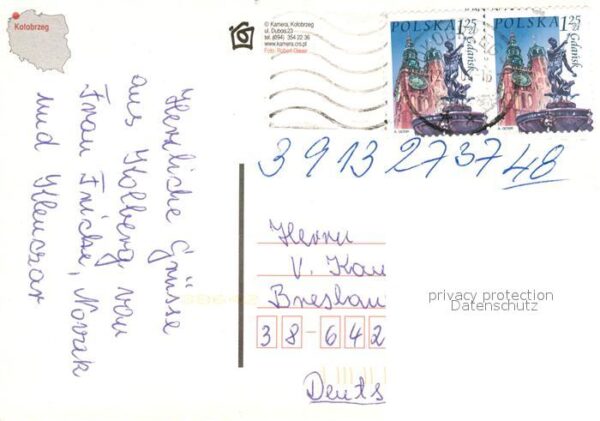 Kołobrzeg
© Kamera, Kołobrzeg
ul. Dubois 23
tel. (094) 354 22 36
www.kamera.crs.pl
Foto: Robert Gauer
POLSKA 1,25 zł Gdańsk
POLSKA 1,25 zł Gdańsk
3 9 1 3 2 7 3 7 48
Herzliche Grüsse
aus Kolberg von
Frau Fricke, Novak
und
Herrn
V. Kau
Breslau
38-642
Deuts
privacy protection
Datenschutz